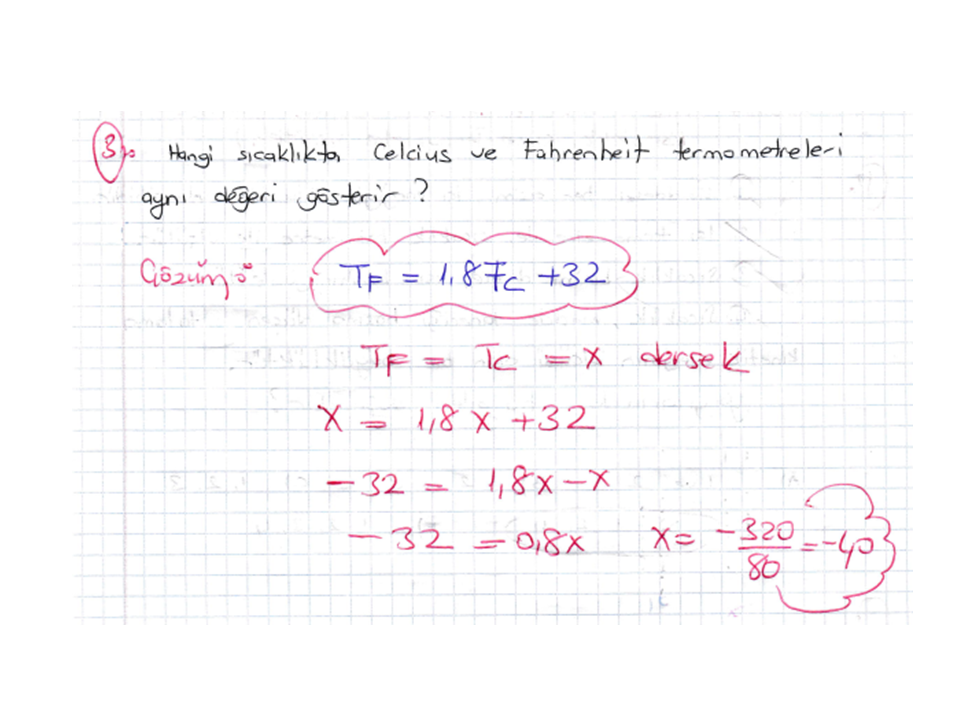 3. Hangi sıcaklıkta Celcius ve Fahrenheit termometreleri
aynı değeri gösterir?
Çözüm:
TF = 1,8TC +32
TF = TC = x dersek
x = 1,8 x +32
-32 = 1,8x-x
-32 = 0,8x x= -320/80 = -40